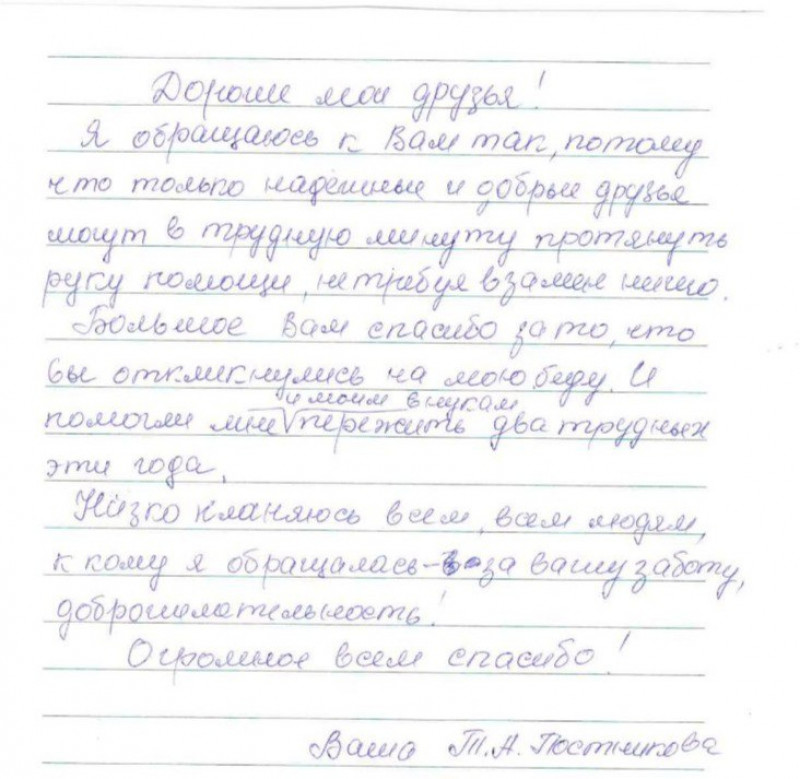 Дорогие мои друзья!
Я обращаюсь к Вам так, потому
что только надежные и добрые друзья
могут в трудную минуту протянуть
руку помощи, не требуя взамен ничего.
Большое Вам спасибо за то, что
вы откликнулись на мою беду. И
и моим внукам
помогли мне пережить два трудных
эти года.
Низко кланяюсь всем, всем людям,
к кому я обращалась - за вашу заботу,
доброжелательность!
Огромное всем спасибо!
Ваша Т.А. Постникова